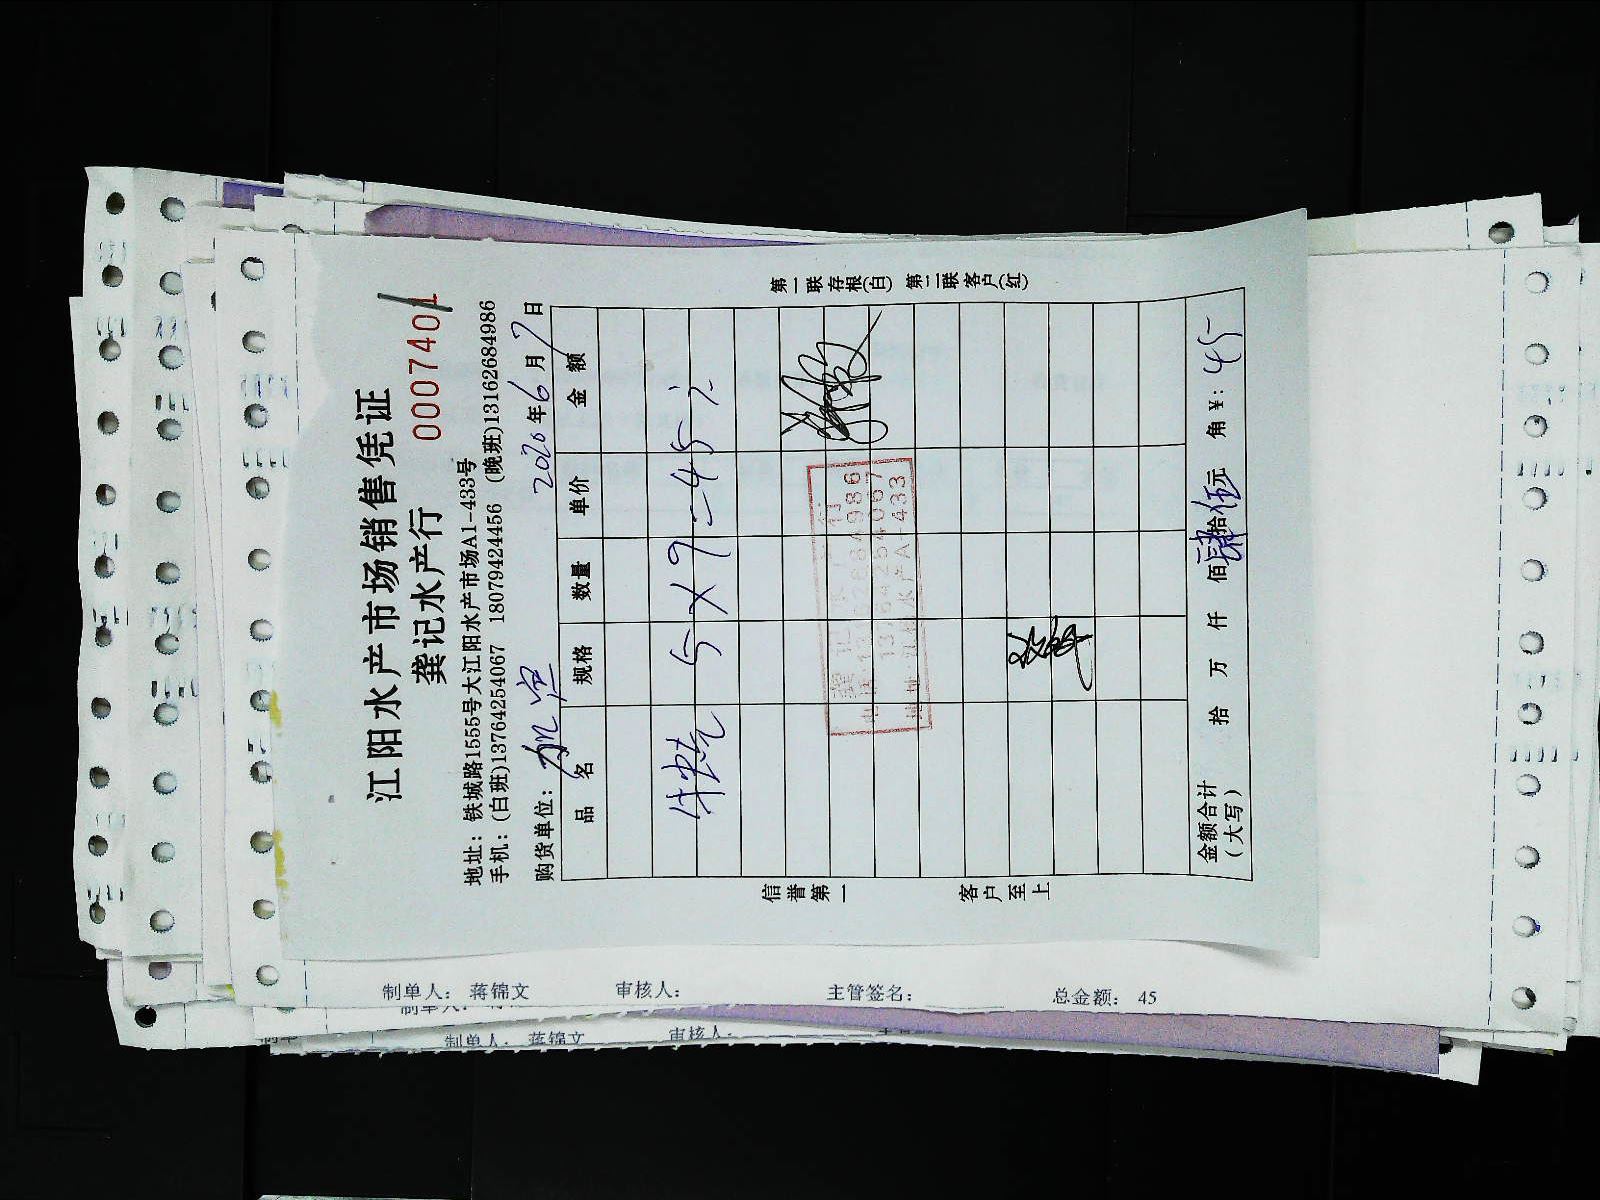 江阳水产市场销售凭证
龚记水产行 0007401
地址：铁城路1555号大江阳水产市场A1-433号
手机：(白班)13764254067 18079424456 (晚班)13162684986
购货单位： 2020年6月7日
品名 规格 数量 单价 金额
5×9=45
第一联存根(白) 第二联客户(红)
信誉第一 客户至上
电话:13162684986
13764254067
地址:江杨水产A-433
金额合计 拾 万 仟 佰肆拾伍元 角 ¥: 45
(大写)
制单人： 蒋锦文 审核人： 主管签名： 总金额： 45
制单人： 蒋锦文 审核人：